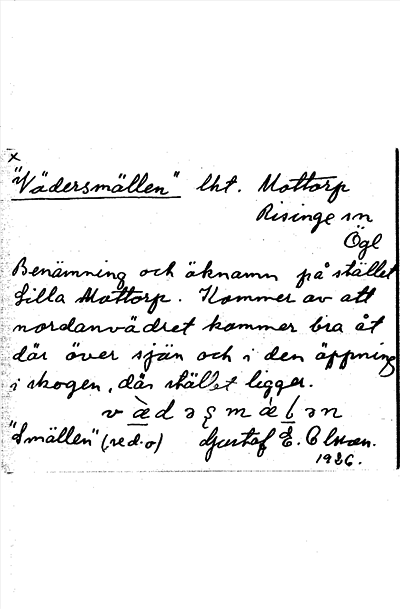 x
"Vädersmällen" lht. Mottorp
Risinge sn
Ögl
Benämning och öknamn på stället
Lilla Mottorp. Kommer av att
nordanvädret kommer bra åt
där över sjön och i den öppning
i skogen, där stället ligger.
"Smällen" (, red. o) Gustaf E. Olsson.
1926.